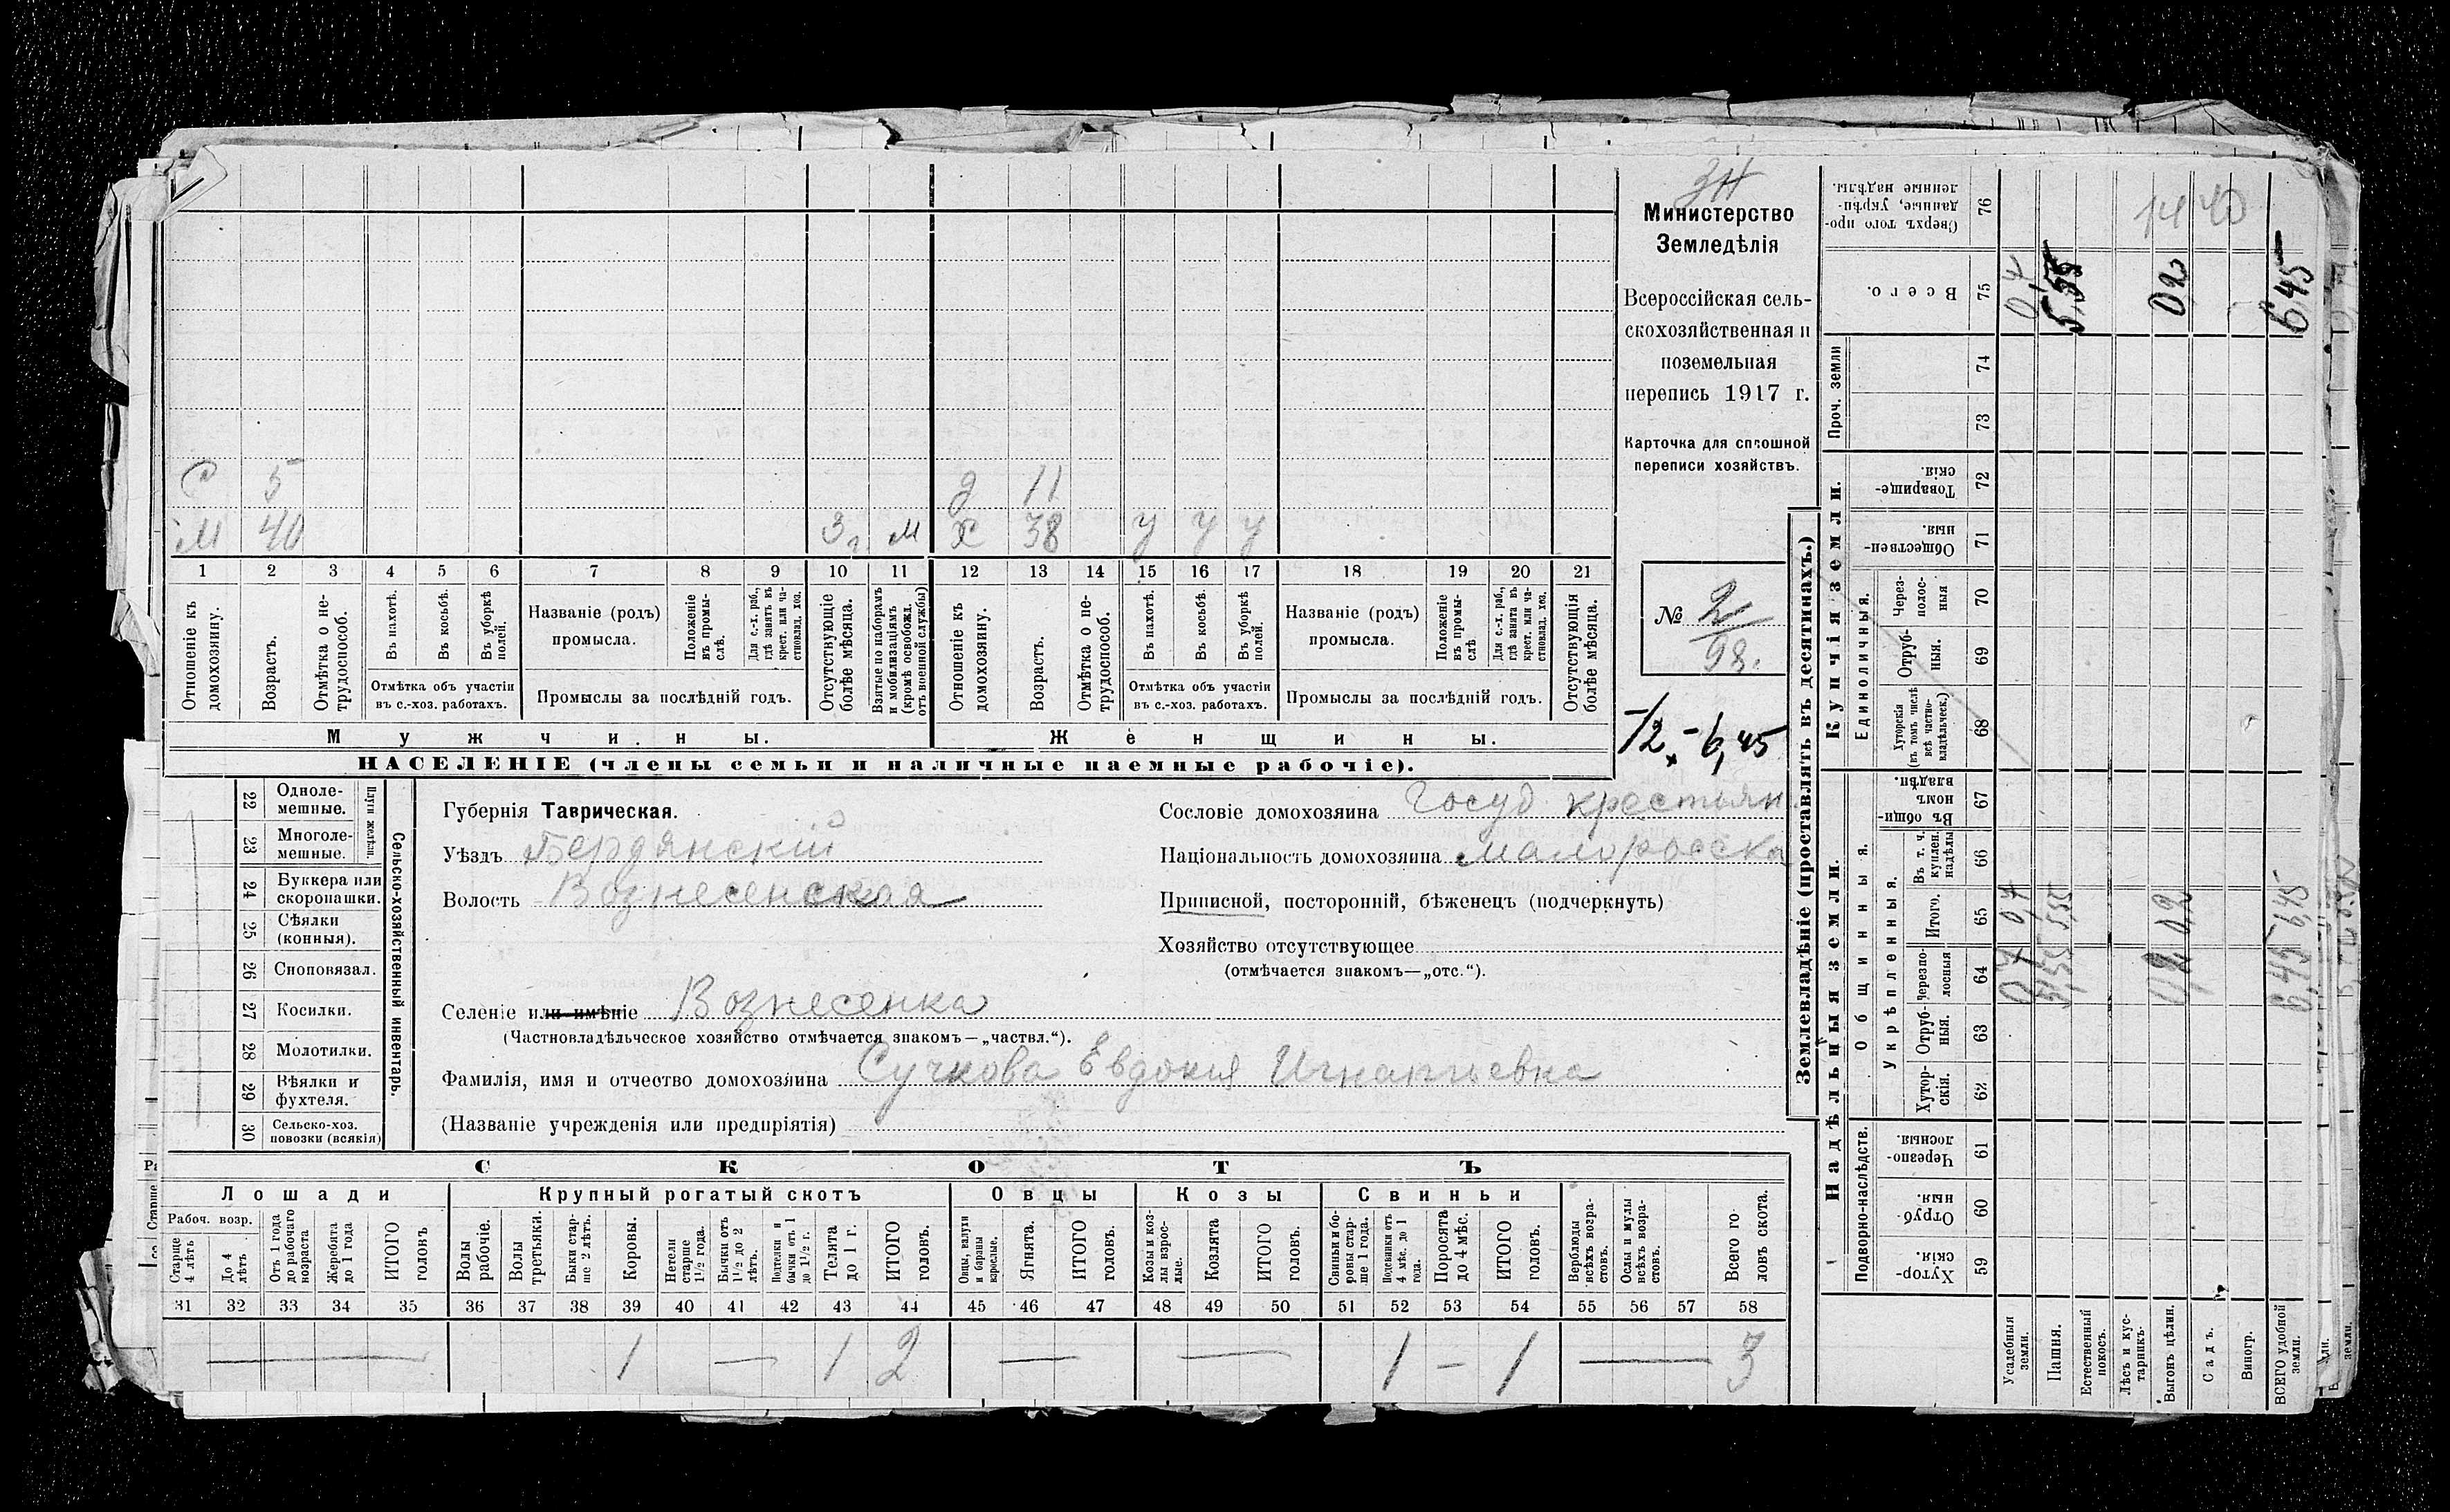 С 5 д 11
М 40 3 г. м х 38 у у у
1 2 3 4 5 6 7 8 9 10 11 12 13 14 15 16 17 18 19 20 21
Отношеніе къ домохозяину.
Возрастъ.
Отмѣтка о не-трудоспособ.
Въ пахотѣ.
Въ косьбѣ.
Въ уборкѣ полей.
Отмѣтка объ участіи
въ с.-хоз. работахъ.
Названіе (родъ)
промысла.
Положеніе въ промы-слѣ.
Для с.-х. раб., гдѣ занятъ въ крест. или ча-стновлад. хоз.
Промыслы за послѣдній годъ.
Отсутствующіе болѣе мѣсяца.
Взятые по наборамъ и мобилизаціямъ (кромѣ освобожд. отъ военной службы)
Отношеніе къ домохозяину.
Возрастъ.
Отмѣтка о не-трудоспособ.
Въ пахотѣ.
Въ косьбѣ.
Въ уборкѣ полей.
Отмѣтка объ участіи
въ с.-хоз. работахъ.
Названіе (родъ)
промысла.
Положеніе въ промы-слѣ
Для с.-х. раб., гдѣ занята въ крест. или ча-стновлад. хоз.
Промыслы за послѣдній годъ.
Отсутствующія болѣе мѣсяца.
Мужчины.
Женщины.
НАСЕЛЕНІЕ (члены семьи и наличные наемные рабочіе).
Министерство
Земледѣлія
Всероссійская сель-
скохозяйственная и
поземельная
перепись 1917 г.
Карточка для сплошной
переписи хозяйствъ.
№ 2
98.
12. - 6,45
22 Одноле-мешные.
23 Многоле-мешные.
Плуги желѣзн.
24 Буккера или скоропашки.
25 Сѣялки (конныя).
26 Сноповязал.
27 Косилки.
28 Молотилки.
29 Вѣялки и фухтеля.
30 Сельско-хоз. повозки (всякія)
Сельско-хозяйственный инвентарь.
Губернія Таврическая.
Уѣздъ Бердянскій
Волость Вознесенская
Селеніе или имѣніе Вознесенка
(Частновладѣльческое хозяйство отмѣчается знакомъ — „частвл.“).
Фамилія, имя и отчество домохозяина Сучкова Евдокия Игнатьевна
(Названіе учрежденія или предпріятія)
Сословіе домохозяина Госуд крестьян
Національность домохозяина малоросска
Приписной, посторонній, бѣженецъ (подчеркнуть)
Хозяйство отсутствующее
(отмѣчается знакомъ—„отс.“).
СКОТЪ
Лошади
Крупный рогатый скотъ
Овцы
Козы
Свиньи
Рабоч. возр.
Старше 4 лѣтъ
До 4 лѣтъ
Отъ 1 года до рабочаго возраста
Жеребята до 1 года
ИТОГО головъ
Волы рабочіе.
Волы третьяки.
Быки стар-ше 2 лѣтъ.
Коровы.
Нетели старше 1½ года.
Бычки отъ 1½ до 2 лѣтъ.
Подтелки и бычки отъ 1 до 1½ г.
Телята до 1 г.
ИТОГО головъ.
Овцы, валухи и бараны взрослые.
Ягнята.
ИТОГО головъ.
Козы и коз-лы взрос-лые.
Козлята
ИТОГО головъ.
Свиньи и бо-ровы стар-ше 1 года.
Подсвинки отъ 4 мѣс. до 1 года.
Поросята до 4 мѣс.
ИТОГО головъ.
Верблюды всѣхъ возра-стовъ.
Ослы и мулы всѣхъ возра-стовъ.
Всего го-ловъ скота.
31 32 33 34 35 36 37 38 39 40 41 42 43 44 45 46 47 48 49 50 51 52 53 54 55 56 57 58
— 1 — 1 2 — — 1 — 1 — 3
Землевладѣніе (проставлять въ десятинахъ.)
Надѣльныя земли.
Купчія земли.
Проч. земли
Подворно-наслѣдств.
Общинныя.
Укрѣпленныя.
Единоличныя.
Хутор-скія. 59
Отруб-ныя. 60
Черезпо-лосныя. 61
Хутор-скія. 62
Отруб-ныя. 63
Черезпо-лосныя 64
Итого. 65
Въ т. ч. куплен. надѣлы 66
Въ общин-номъ владѣн. 67
Хуторскія (въ томъ числѣ всѣ частно-владѣльческ.) 68
Отруб-ныя. 69
Через-полос-ныя 70
Обществен-ныя. 71
Товарище-скія. 72
73
74
Всего. 75
Сверхъ того про-данные, укрѣп-ленные надѣлы. 76
Усадебныя земли. 0,7 0,7 0,7
Пашня. 5,55 5,55 5,55
Естественный покосъ.
Лѣсъ и кус-тарникъ.
Выгонъ цѣлин. 0,2 0,2 0,2
Садъ.
Виногр.
ВСЕГО удобной земли. 6,45 6,45 6,45